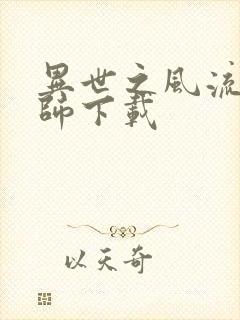 異世之風流
師下載
以天奇